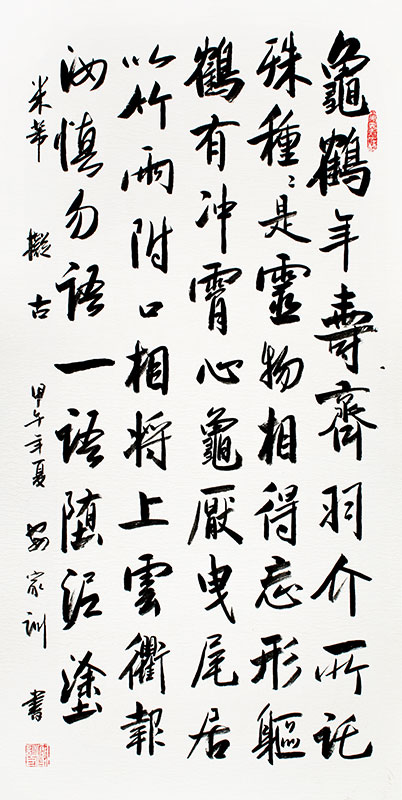 龜鶴年壽齊羽介所託
殊種〻是靈物相得忘形軀
鶴有冲霄心龜厭曳尾居
以竹兩附口相將上雲衢報
汝慎勿語一語堕泥塗
米芾 擬古 甲午年夏 家訓 書